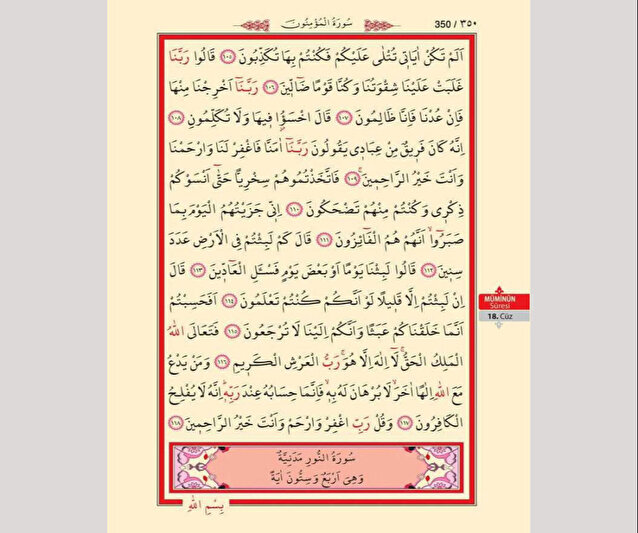 350 / ٣٥٠
سُورَةُ الْمُؤْمِنُونَ
اَلَمْ تَكُنْ اٰيَاتٖي تُتْلٰى عَلَيْكُمْ فَكُنْتُمْ بِهَا تُكَذِّبُونَ ﴿١٠٥﴾ قَالُوا رَبَّنَا
غَلَبَتْ عَلَيْنَا شِقْوَتُنَا وَكُنَّا قَوْمًا ضَٓالّٖينَ ﴿١٠٦﴾ رَبَّنَٓا اَخْرِجْنَا مِنْهَا
فَاِنْ عُدْنَا فَاِنَّا ظَالِمُونَ ﴿١٠٧﴾ قَالَ اخْسَؤُ۫ا فٖيهَا وَلَا تُكَلِّمُونِ ﴿١٠٨﴾
اِنَّهُ كَانَ فَرٖيقٌ مِنْ عِبَادٖي يَقُولُونَ رَبَّنَٓا اٰمَنَّا فَاغْفِرْ لَنَا وَارْحَمْنَا
وَاَنْتَ خَيْرُ الرَّاحِمٖينَۚ ﴿١٠٩﴾ فَاتَّخَذْتُمُوهُمْ سِخْرِيًّا حَتّٰٓى اَنْسَوْكُمْ
ذِكْرٖي وَكُنْتُمْ مِنْهُمْ تَضْحَكُونَ ﴿١١٠﴾ اِنّٖي جَزَيْتُهُمُ الْيَوْمَ بِمَا
صَبَرُٓواۙ اَنَّهُمْ هُمُ الْفَٓائِزُونَ ﴿١١١﴾ قَالَ كَمْ لَبِثْتُمْ فِي الْاَرْضِ عَدَدَ
سِنٖينَ ﴿١١٢﴾ قَالُوا لَبِثْنَا يَوْمًا اَوْ بَعْضَ يَوْمٍ فَسْـَٔلِ الْعَٓادّٖينَ ﴿١١٣﴾ قَالَ
اِنْ لَبِثْتُمْ اِلَّا قَلٖيلًا لَوْ اَنَّكُمْ كُنْتُمْ تَعْلَمُونَ ﴿١١٤﴾ اَفَحَسِبْتُمْ
اَنَّمَا خَلَقْنَاكُمْ عَبَثًا وَاَنَّكُمْ اِلَيْنَا لَا تُرْجَعُونَ ﴿١١٥﴾ فَتَعَالَى اللّٰهُ
الْمَلِكُ الْحَقُّۚ لَٓا اِلٰهَ اِلَّا هُوَۚ رَبُّ الْعَرْشِ الْكَرٖيمِ ﴿١١٦﴾ وَمَنْ يَدْعُ
مَعَ اللّٰهِ اِلٰهًا اٰخَرَۙ لَا بُرْهَانَ لَهُ بِهٖۙ فَاِنَّمَا حِسَابُهُ عِنْدَ رَبِّهٖؕ اِنَّهُ لَا يُفْلِحُ
الْكَافِرُونَ ﴿١١٧﴾ وَقُلْ رَبِّ اغْفِرْ وَارْحَمْ وَاَنْتَ خَيْرُ الرَّاحِمٖينَ ﴿١١٨﴾
سُورَةُ النُّورِ مَدَنِيَّةٌ
وَهِيَ اَرْبَعٌ وَسِتُّونَ اٰيَةً
بِسْمِ اللّٰهِ
MÜMİNÛN
Sûresi
18. Cüz